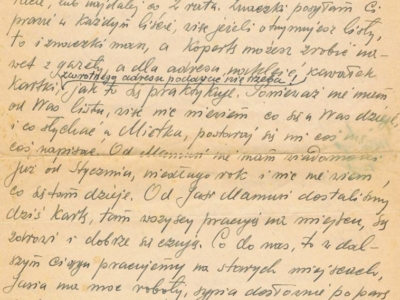 prawie w każdym liście, więc jeżeli otrzymujesz listy,
to i znaczki masz, a kopertę możesz zrobić na-
wet z gazety, a dla adresu nakleić kawałek
(zwrotnego adresu podawać nie trzeba)
kartki, jak to się praktykuje. Ponieważ nie mam
od Was listu, więc nie wiem co się u Was dzieje
i co słychać u Mietka, postaraj się mi coś
coś napisać. Od Mamusi nie mam wiadomości
już od Stycznia, niedługo rok i nic nie wiem,
co się tam dzieje. Od Jasi Mamusi dostaliśmy
dziś kartę, tam wszyscy pracują na miejscu, są
zdrowi i dobrze się czują. Co do nas, to w dal-
szym ciągu pracujemy na starych miejscach,
Jasia ma moc roboty, sypia dosłownie po parę